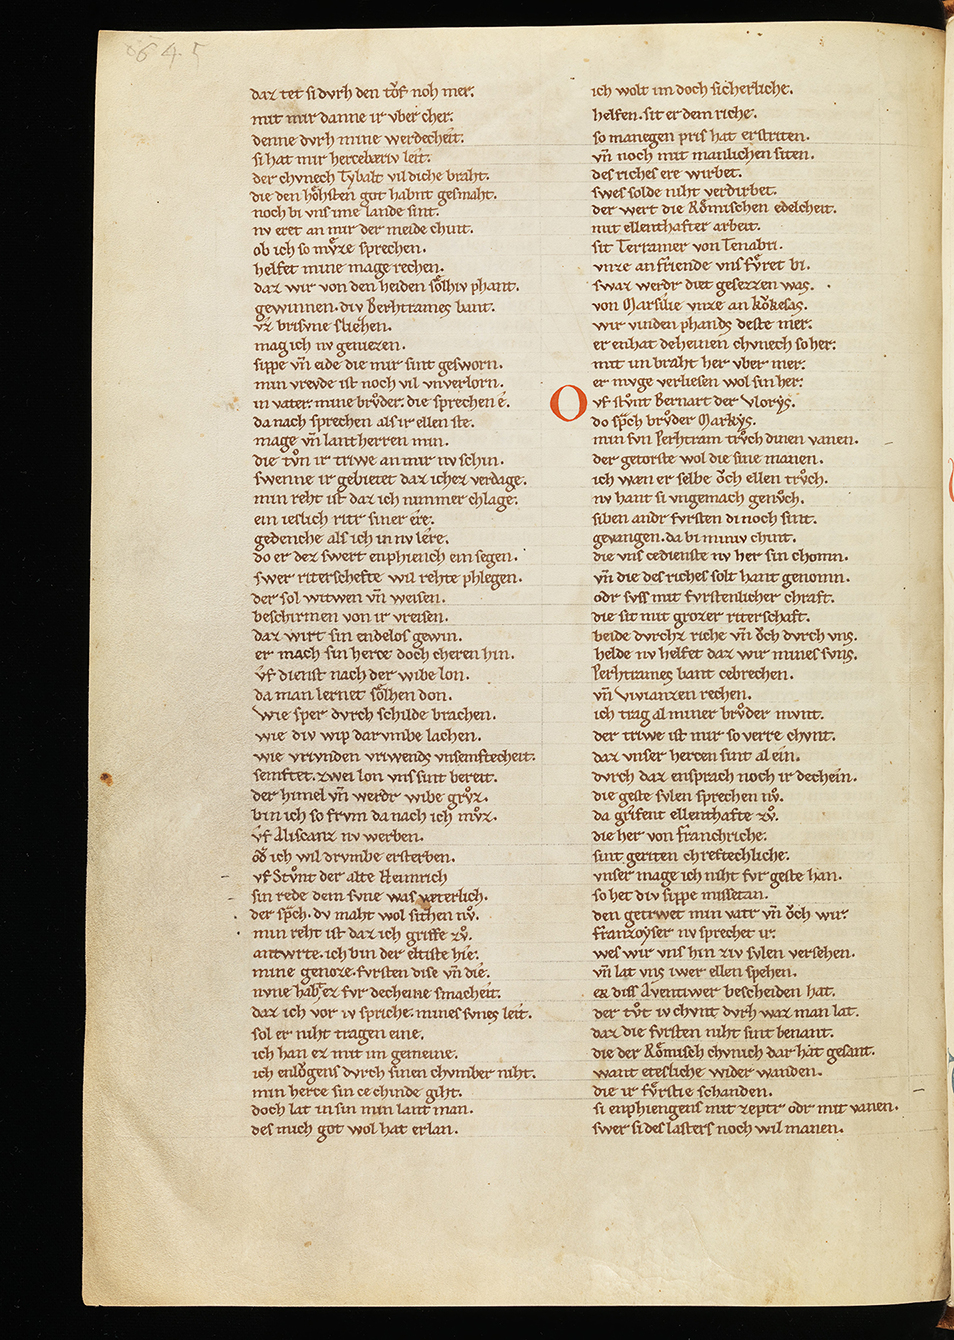 645
daz tet si dvrh den tôf noh mer.
mit mir danne ir vber cher.
denne dvrh mine werdecheit.
si hat mir hercebæriv leit.
der chvnech Tybalt vil diche braht.
die den hôhsten got habnt gesmaht.
noch bi vns ime lande sint.
nv eret an mir der meide chint.
ob ich so mvͦze sprechen.
helfet mine mage rechen.
daz wir von den heiden sôlhiv phant.
gewinnen. div Berhtrames bant.
vz brisvne sliehen.
mag ich nv geniezen.
sippe vn̄ eide die mir sint gesworn.
min vrevde ist noch vil vnverlorn.
in vater mine brvͦder. die sprechen é.
da nach sprechen als ir ellen ste.
mage vn̄ lantherren min.
die tvͦn ir triwe an mir nv schin.
swenne ir gebietet daz ichez verdage.
min reht ist daz ich nimmer chlage.
ein ieslich ritr siner ere.
gedenche als ich in nv lere.
do er dez swert enphiench ein segen.
swer riterschefte wil rehte phlegen.
der sol witwen vn̄ weisen.
beschirmen von ir vreisen.
daz wirt sin endelos gewin.
er mach sin herce doch cheren hin.
vf dienst nach der wibe lon.
da man lernet sôlhen don.
wie sper dvrch schilde brachen.
wie div wip darvmbe lachen.
wie vrivnden vriwends vnsemftecheit.
semftet. zwei lon vns sint bereit.
der himel vn̄ werdr wibe grvͦz.
bin ich so frvm da nach ich mvͦz.
vf Aliscanz nv werben.
odr ich wil drvmbe ersterben.
vf Stvͦnt der alte Heimrich
sin rede dem svne was veterlich.
der sp̄ch. dv maht wol sithen nvͦ.
min reht ist daz ich griffe zvͦ.
antwrte. ich bin der eltiste hie.
mine genoze. fvrsten dise vn̄ die.
nvne habr ez fvr decheine smacheit.
daz ich vor iv spriche. mines svnes leit.
sol er niht tragen eine.
ich han ez mit im gemeine.
ich enlôgens dvrch sinen chvmber niht.
min herce sin ce chinde giht.
doch lat in sin min lant man.
des mich got wol hat erlan.
ich wolt im doch sicherliche.
helfen. sit er dem riche.
so manegen pris hat erstriten.
vn̄ noch mit manlichen siten.
des riches ere wirbet.
swes solde niht verdirbet.
der wert die Rômischen edelcheit.
mit ellenthafter arbeit.
sit Terramer von Tenabri.
vnze an friende vns fvͤret bi.
swaz werdr diet gesezzen was.
von Marsilie vnze an kôkesas.
wir vinden phands deste mer.
er enhat deheinen chvnech so her.
mit im braht her vber mer.
er mvge verliesen wol sin her.
Ovf stvͦnt Bernart der vlorys.
do sp̄ch brvͦder Markys.
min svn Perhtram trvͦch dinen vanen.
der getorste wol die sine manen.
ich wæn er selbe ôch ellen trvͦch.
nv hant si vngemach genvͦch.
siben andr fvrsten di noch sint.
gevangen. da bi miniv chint.
die vns cedienste nv her sin chomn.
vn̄ die des riches solt hant genomn.
odr svss mit fvrstenlicher chraft.
die sit mit grozer riterschaft.
beide dvrchz riche vn̄ ôch dvrch vns.
helde nv helfet daz wir mines svns.
Perhtrames bant cebrechen.
vn̄ vivianzen rechen.
ich trag al miner brvͦder mvnt.
der triwe ist mir so verre chvnt.
daz vnser hercen sint al ein.
dvrch daz ensprach noch ir dechein.
die geste svlen sprechen nvͦ.
da grifent ellenthafte zvͦ.
die her von franchriche.
sint geriten chreftechliche.
vnser mage ich niht fvr geste han.
so het div sippe missetan.
den getrwet min vatr vn̄ ôch wir
franzoyser nv sprechet ir.
wes wir vns hin ziv svlen versehen.
vn̄ lat vns iwer ellen spehen.
er diss Aventiwer bescheiden hat.
der tvͦt iv chvnt dvrh waz man lat.
daz die fvrsten niht sint benant.
die der Rômisch chvnich dar hat gesant.
want etesliche wider wanden.
die ir fvͤrstie schanden.
si enphiengens mit zeptr odr mit vanen.
swer si des lasters noch wil manen.